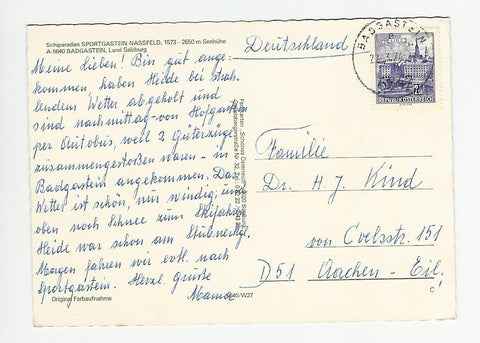 Schiparadies SPORTGASTEIN-NASSFELD, 1573 – 2650 m Seehöhe
A-5640 BADGASTEIN, Land Salzburg
Meine Lieben! Bin gut ange-
kommen, haben Heide bei strah-
lendem Wetter abgeholt und
sind nachmittag von Hofgastein
per Autobus, weil 2 Güterzüge
zusammengestoßen waren - in
Badgastein angekommen. Das
Wetter ist schön, nur windig; und
oben noch Schnee zum Skifahren.
Heide war schon am Stubnerkogl.
Morgen fahren wir evtl. nach
Sportgastein. Herzl. Grüße
Mama
Original Farbaufnahme
Deutschland
BADGASTEIN
REPUBLIK ÖSTERREICH
Familie
Dr. H. J. Kind
von Coelsstr. 151
D 51 Aachen - Eil.